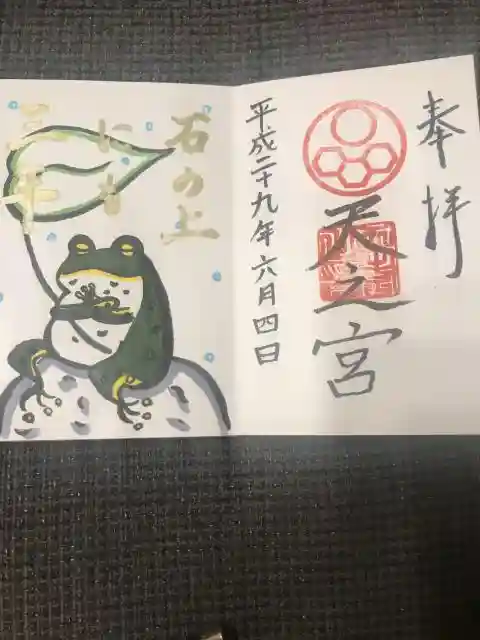 奉拝
天之宮
平成二十九年六月四日
石の上
にも
三年